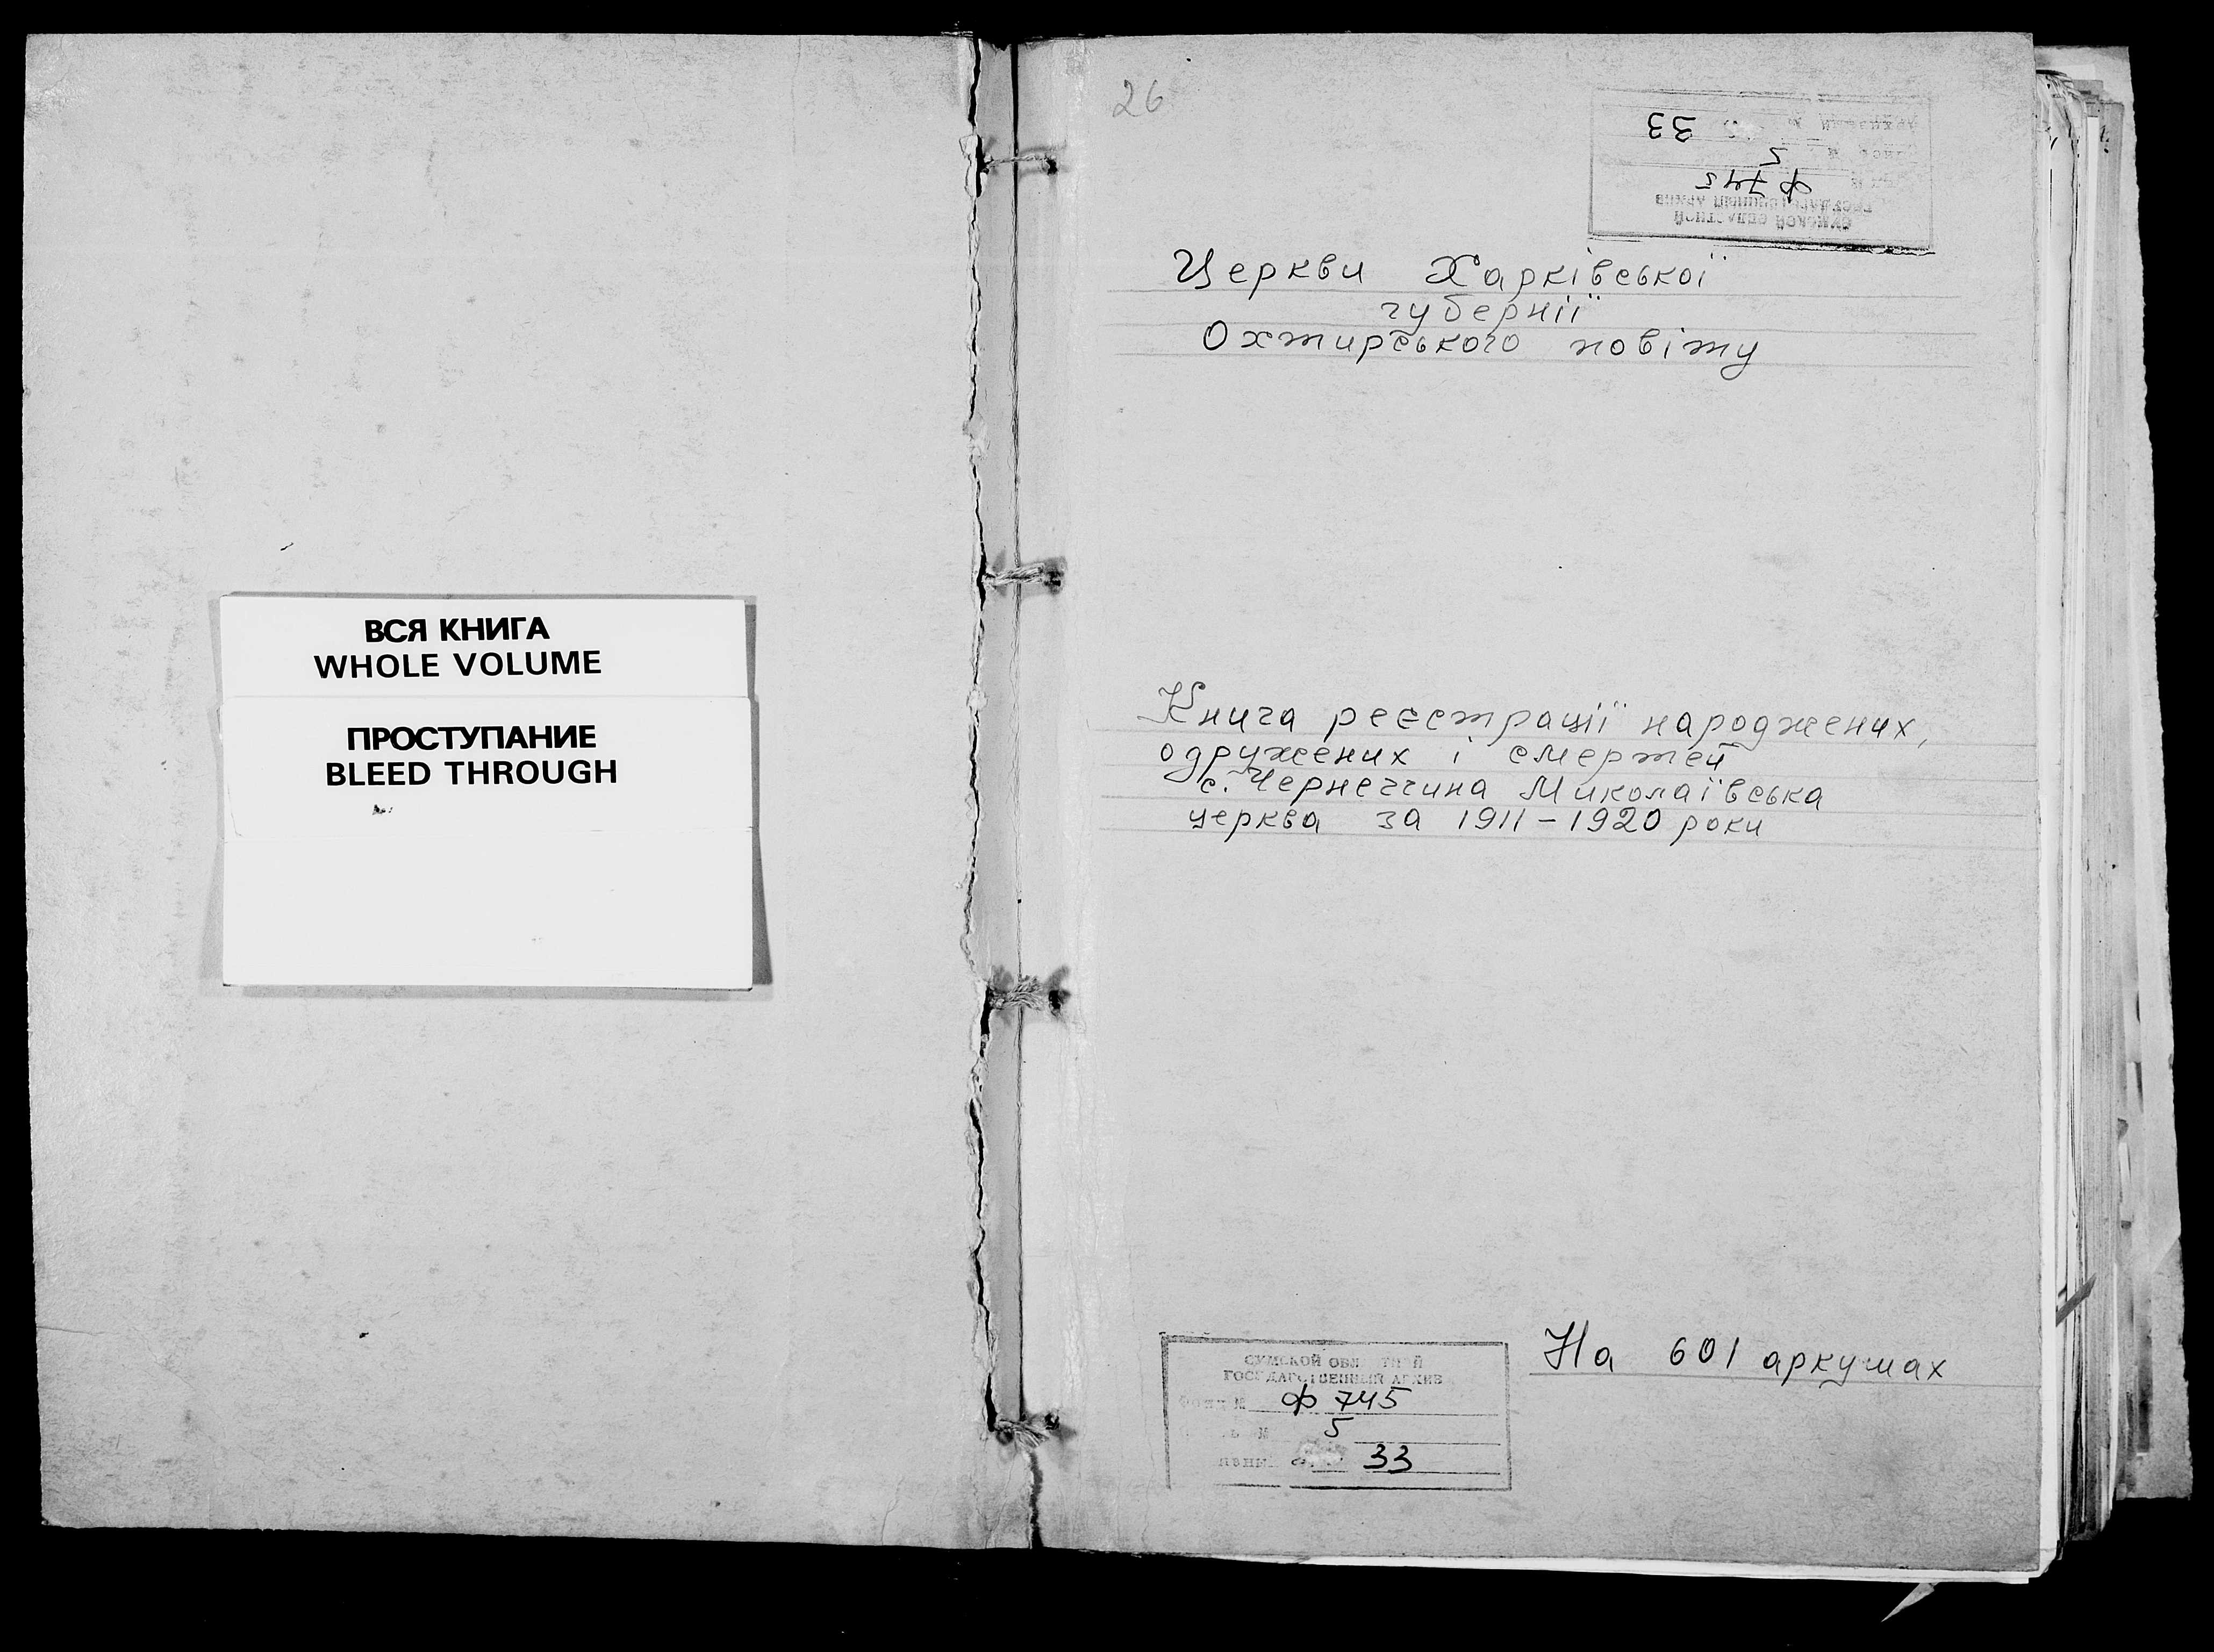 ВСЯ КНИГА
WHOLE VOLUME
ПРОСТУПАНИЕ
BLEED THROUGH
26
СУМСКОЙ ОБЛАСТНОЙ
ГОСУДАРСТВЕННЫЙ АРХИВ
ф 745
5
33
Церкви Харківської
губернії
Охтирського повіту
Книга реєстрації народжених,
одружених і смертей
с. Чернеччина Миколаївська
церква за 1911-1920 роки
На 601 аркушах
СУМСКОЙ ОБЛАСТНОЙ
ГОСУДАРСТВЕННЫЙ АРХИВ
Фонд № ф 745
№ 5
33